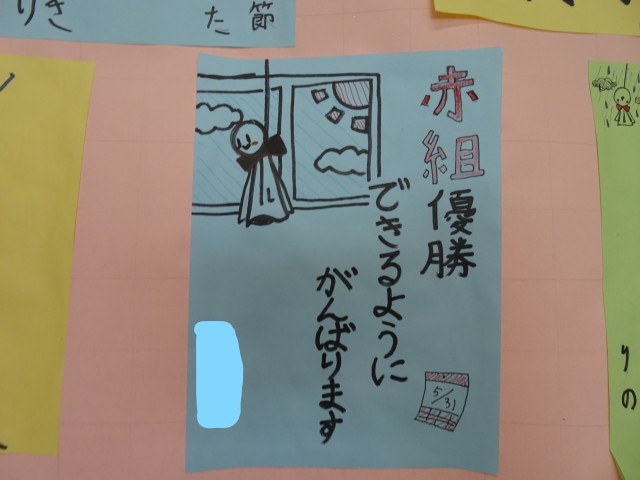 赤組優勝
できるように
がんばります
5/31
節
た
りき
りの